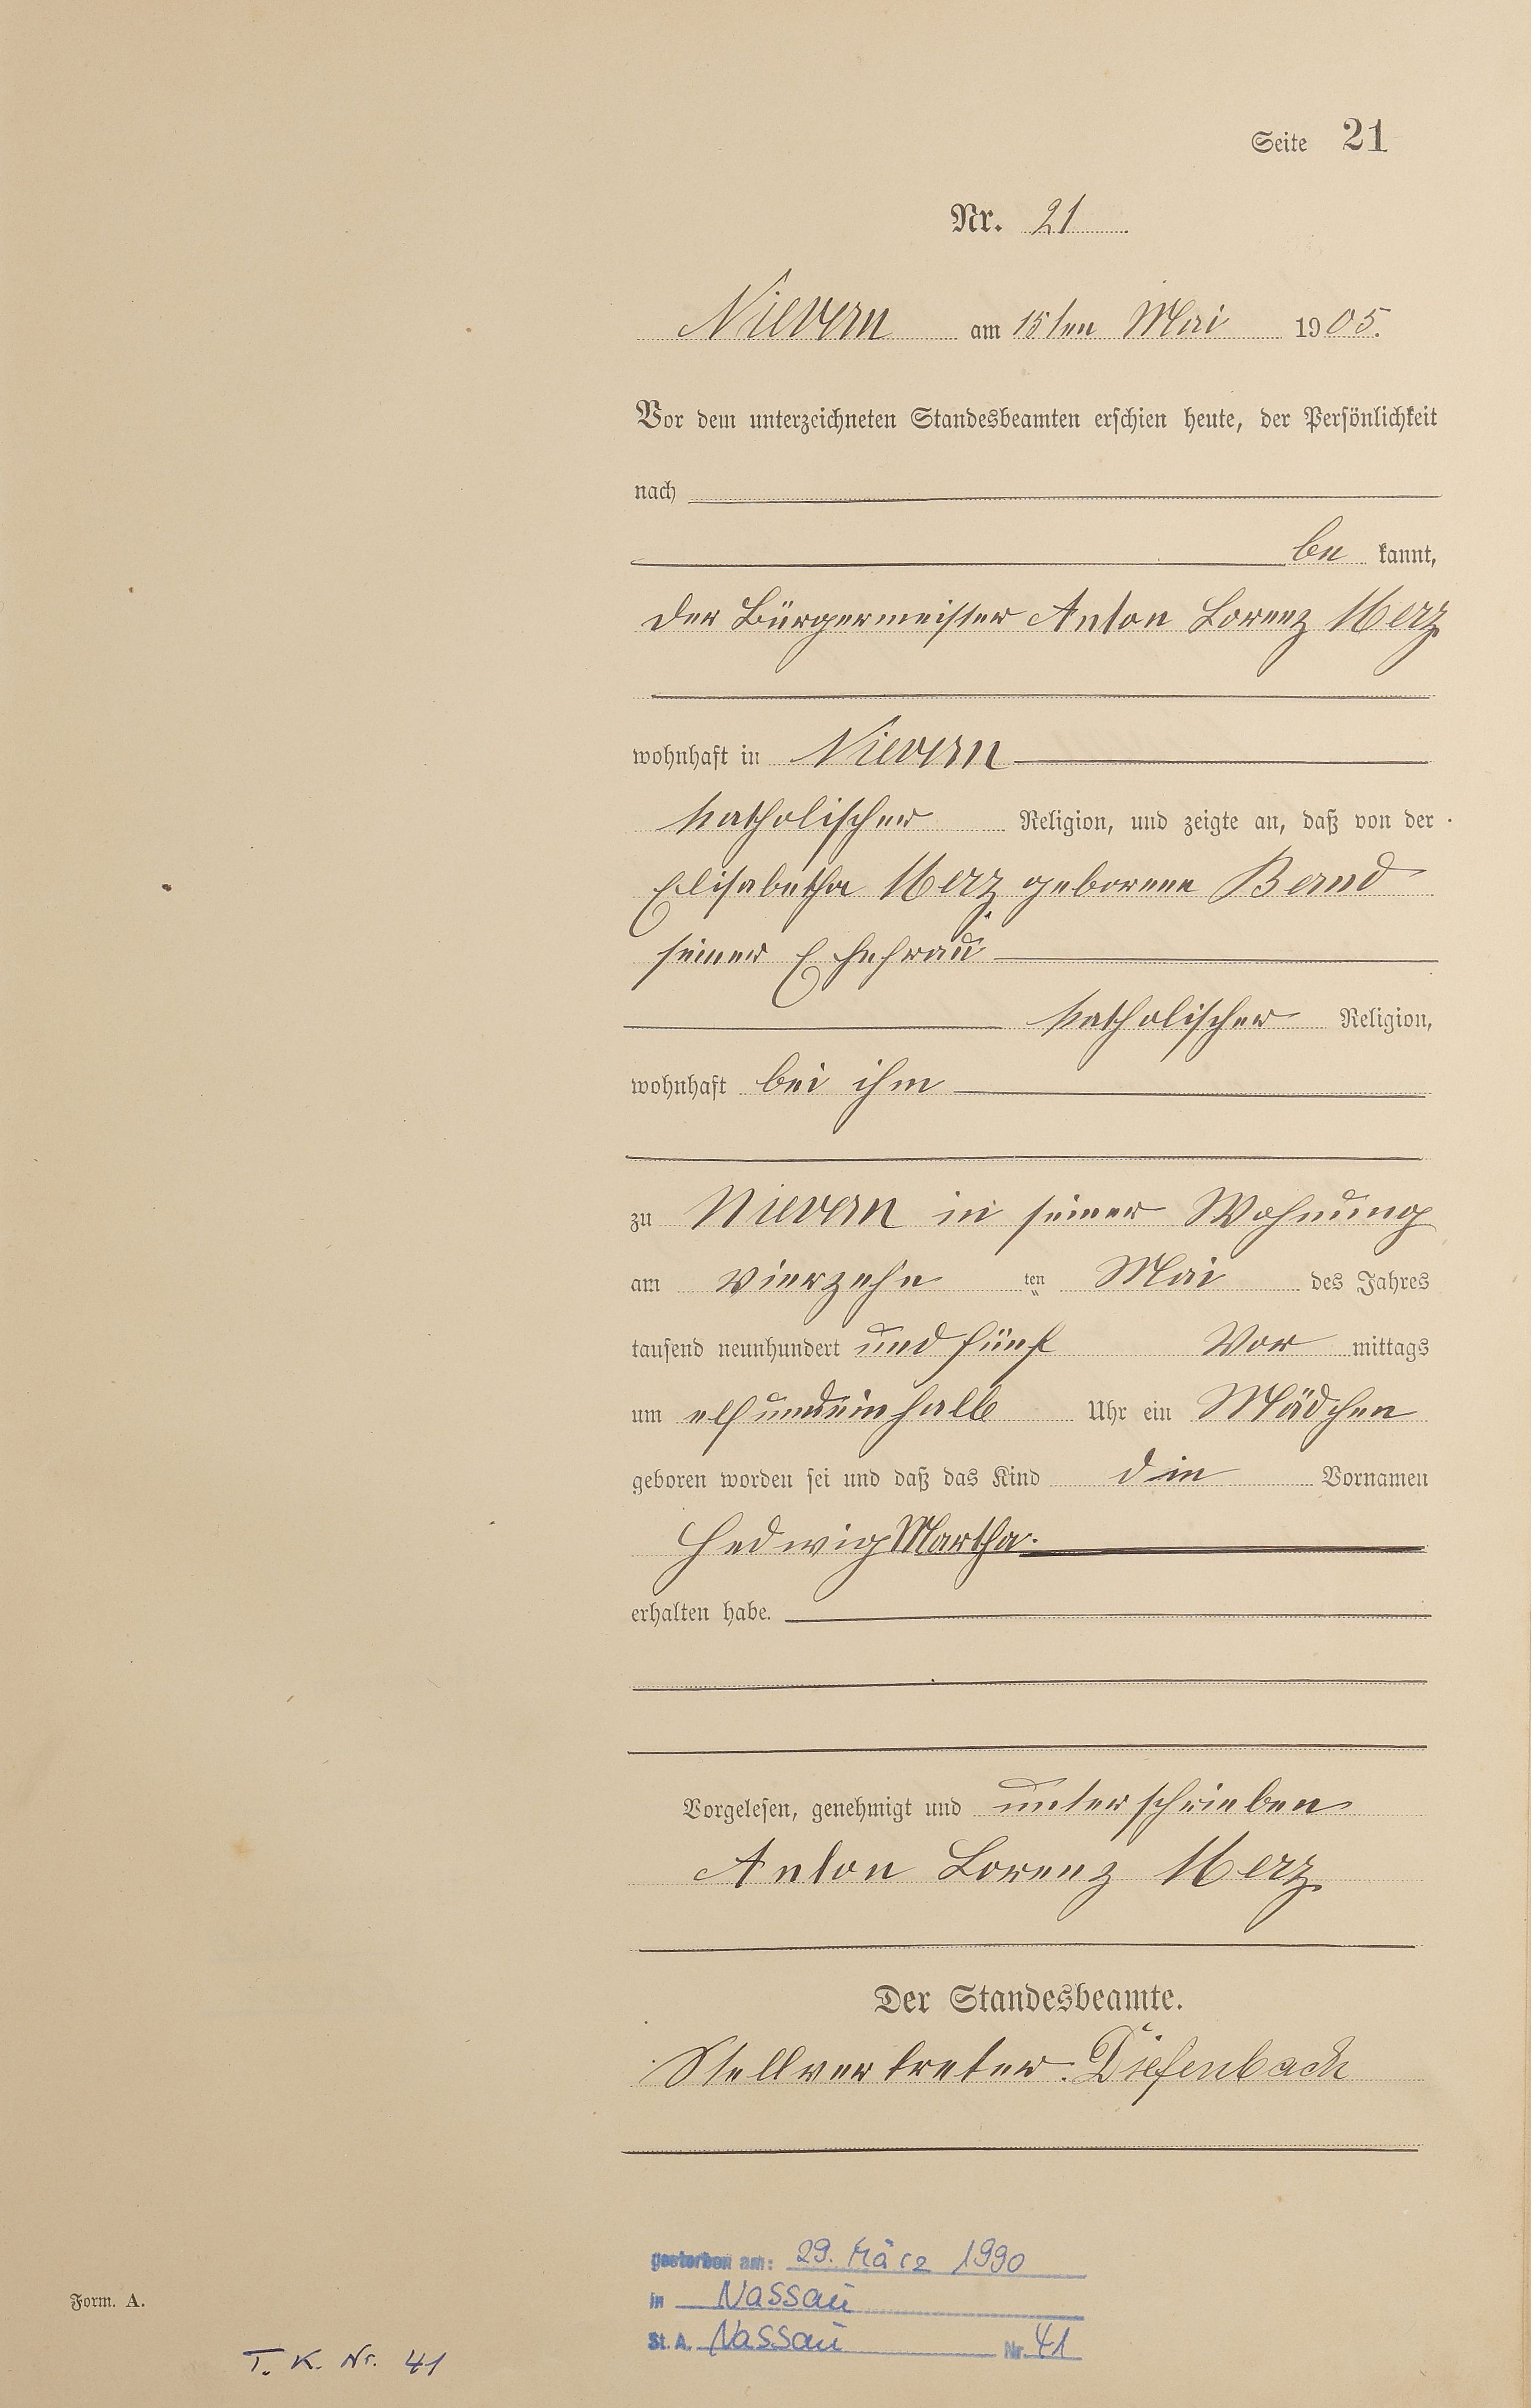 Seite 21
Nr. 21
Nievern am 15ten Mai 1905.
Vor dem unterzeichneten Standesbeamten erschien heute, der Persönlichkeit
nach
be kannt,
der Bürgermeister Anton Lorenz Merz
wohnhaft in Nievern
katholischer Religion, und zeigte an, daß von der
Elisabetha Merz geborene Bernd
seiner Ehefrau
katholischer Religion,
wohnhaft bei ihm
zu Nievern in seiner Wohnung
am vierzehn ten Mai des Jahres
tausend neunhundert und fünf Vor mittags
um elfundeinhalb Uhr ein Mädchen
geboren worden sei und daß das Kind die Vornamen
Hedwig Martha.
erhalten habe.
Vorgelesen, genehmigt und unterschrieben
Anton Lorenz Merz
Der Standesbeamte.
Stellvertreter. Diefenbach
gestorben am: 29. März 1990
in Nassau
St. A. Nassau Nr. 41
Form. A.
T. K. Nr. 41